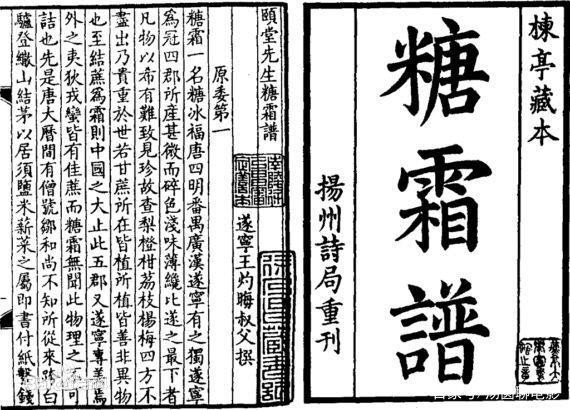 楝亭藏本
糖霜譜
揚州詩局重刊
頤堂先生糖霜譜
遂寧王灼晦叔父撰
原委第一
糖霜一名糖氷福唐四明番禺廣漢遂寧有之獨遂寧
爲冠四郡所産甚微而碎色淺味薄纔比遂之最下者
凡物以希有難致見珍故查梨橙柑荔枝楊梅四方不
盡出乃貴重於世若甘蔗所在皆植所植皆善非異物
也至結蔗爲霜則中國之大止此五郡又遂寧專美焉
外之夷狄戎蠻皆有佳蔗而糖霜無聞此物理之不可
詰也先是唐大曆間有僧號鄒和尚不知所從來跨白
驢登繖山結茅以居須鹽米薪菜之屬即書付紙繫錢